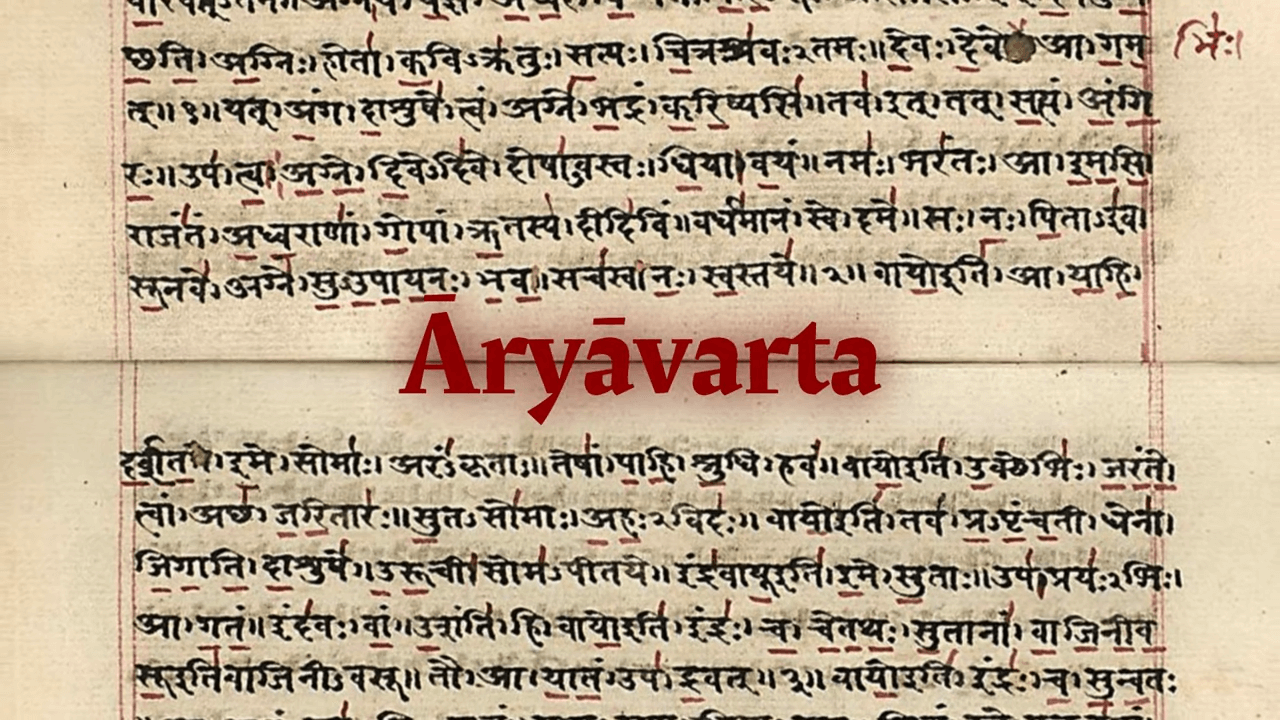 छति। अग्निः। होता। कविऽक्रतुः। सत्यः। चित्रश्रवःऽतमः॥ देवः। आ। गम भिः।
त्॥ १॥ यत्। अंग। दाशुषे। त्वं। अग्ने। भद्रं। करिष्यसि॥ तव। इत्। तत्। सत्यं। अंगि
रः॥ उप। त्वा। अग्ने। दिवेऽदिवे। दोषाऽवस्तः। धिया। वयं॥ नमः। भरंतः। आ। इमसि
राजंतं। अध्वराणां। गोपां। ऋतस्य। दीदिविं॥ वर्धमानं। स्वे। दमे॥ सः। नः। पिताऽइव।
सूनवे। अग्ने। सुऽउपायनः। भव॥ सचस्व। नः। स्वस्तये॥ २॥ वायो इति। आ। याहि।
Āryāvarta
इमे। सोमाः। अरंऽकृताः॥ तेषां। पाहि। श्रुधि। हवं॥ वायो इति। उक्थेभिः। जरंते।
त्वां। अच्छ। जरितारः॥ सुतऽसोमाः। अहःऽविदः॥ वायो इति। तव। प्रऽपृंचती। धेना।
जिगाति। दाशुषे॥ उरूची। सोमऽपीतये॥ इंद्रवायू इति। इमे। सुताः॥ उप। प्रयःऽभिः।
आ। गतं॥ इंदवः। वां॥ उशंति। हि। वायो इति। इंद्रः। च। चेतथः। सुतानां। वाजिनीव
सू इति वाजिनीऽवसू॥ तौ। आ। यातं। उप। द्रवत्॥ ३॥ वायो इति। इंद्रः। च। सुन्वतः